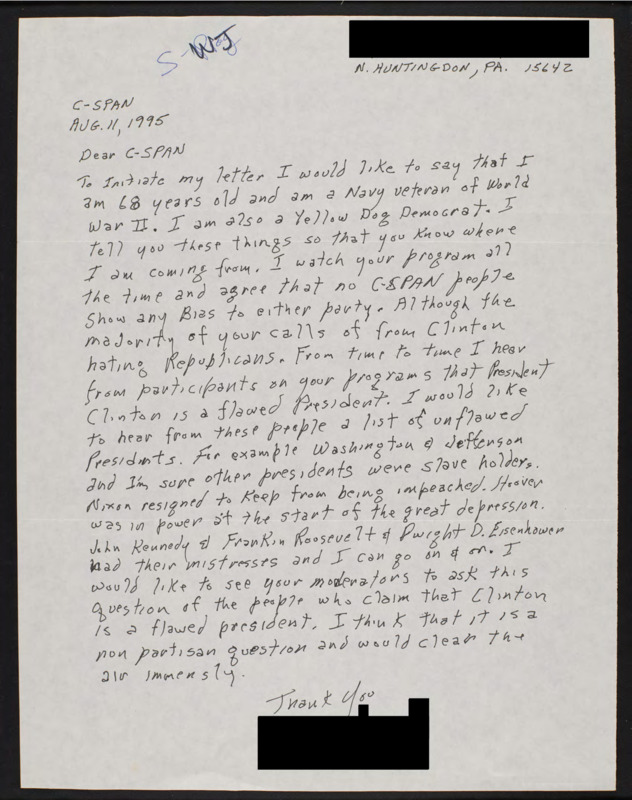 WJ
N. HUNTINGDON, PA. 15642
C-SPAN
AUG. 11, 1995
Dear C-SPAN
To Initiate my letter I would like to say that I
am 68 years old and am a Navy veteran of World
War II. I am also a Yellow Dog Democrat. I
tell you these things so that you know where
I am coming from. I watch your program all
the time and agree that no C-SPAN people
show any Bias to either party. Although the
majority of your calls of from Clinton
hating Republicans. From time to time I hear
from participants on your programs that President
Clinton is a flawed President. I would like
to hear from these people a list of unflawed
Presidnts. For example Washington & Jefferson
and I'm sure other presidents were slave holders.
Nixon resigned to keep from being impeached. Hoover
was in power at the start of the great depression.
John Kennedy & Franklin Roosevelt & Dwight D. Eisenhower
had their mistresses and I can go on & on. I
would like to see your moderators to ask this
question of the people who claim that Clinton
is a flawed president. I think that it is a
non partisan question and would clear the
air immensly.
Thank You